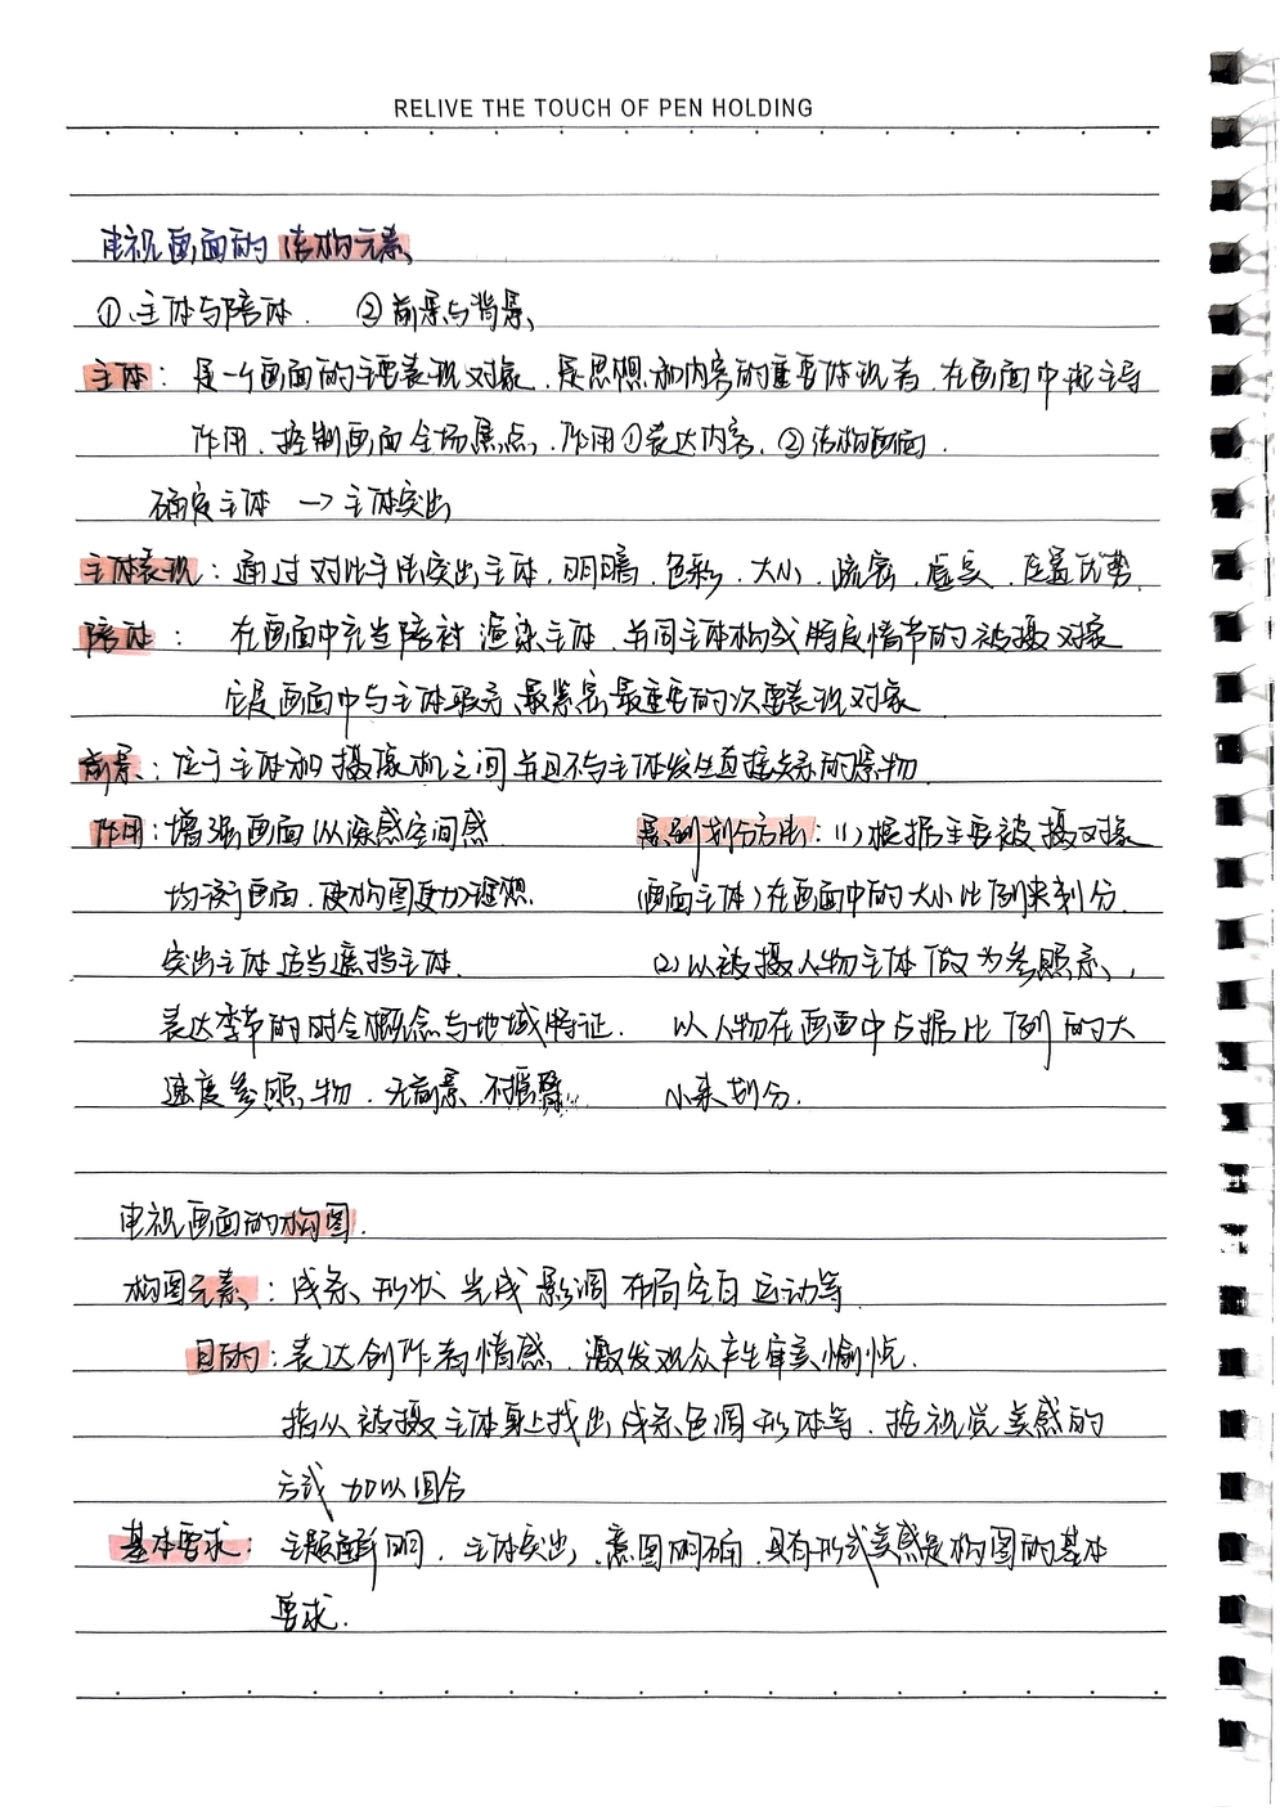 RELIVE THE TOUCH OF PEN HOLDING
电视画面的结构元素
①主体与陪体. ②前景与背景
主体: 是一个画面的主要表现对象.是思想和内容的重要体现者.在画面中起主导
作用.控制画面全场焦点.作用①表达内容.②结构画面.
确定主体 → 主体突出
主体表现: 通过对比手法突出主体.明暗.色彩.大小.疏密.虚实.位置优势.
陪体: 在画面中充当陪衬 渲染主体.并同主体构成特定情节的被摄对象
它是画面中与主体联系最紧密最重要的次要表现对象
前景: 位于主体和摄像机之间并且不与主体发生直接关系的景物
作用: 增强画面纵深感空间感
均衡画面.使构图更加理想.
突出主体适当遮挡主体.
表达季节的时令概念与地域特征.
速度参照物.无前景 不摇臂.
景别划分方法: (1)根据主要被摄对象
(画面主体)在画面中的大小比例来划分.
(2)以被摄人物主体做为参照系,
以人物在画面中占据比例的大
小来划分.
电视画面的构图.
构图元素: 线条、形状 光线 影调 布局空白 运动等
目的: 表达创作者情感.激发观众产生审美愉悦.
指从被摄主体身上找出线条色调形体等.按视觉美感的
方式 加以组合
基本要求: 主题鲜明.主体突出.意图明确.具有形式美感是构图的基本
要求.